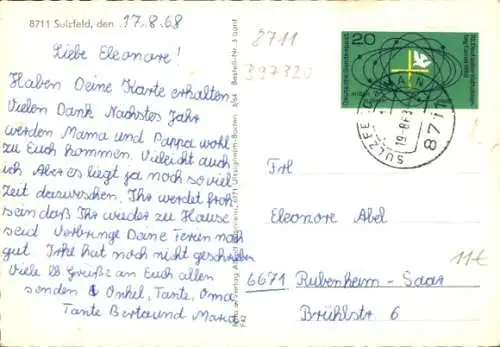 8711 Sulzfeld, den 17.8.68
Liebe Eleonore!
Haben Deine Karte erhalten
Vielen Dank Nachstes Jahr
werden Mama und Pappa wohl
zu Euch kommen. Vieleicht auch
ich Aber es liegt ja noch so viel
Zeit dazwischen. Ihr werdet froh
sein daß Ihr wieder zu Hause
seid Verbringe Deine Ferien noch
gut Irke hat noch nicht geschrieben
Viele lb Grüße an Euch allen
senden Onkel, Tante, Oma
Tante Berta und Maria
8711
397320
20
Deutsche Bundespost
SULZFE
19-8.68
871
Frl
Eleonore Abel
11€
6671 Rubenheim-Saar
Brühlstr 6
Bestell-Nr.